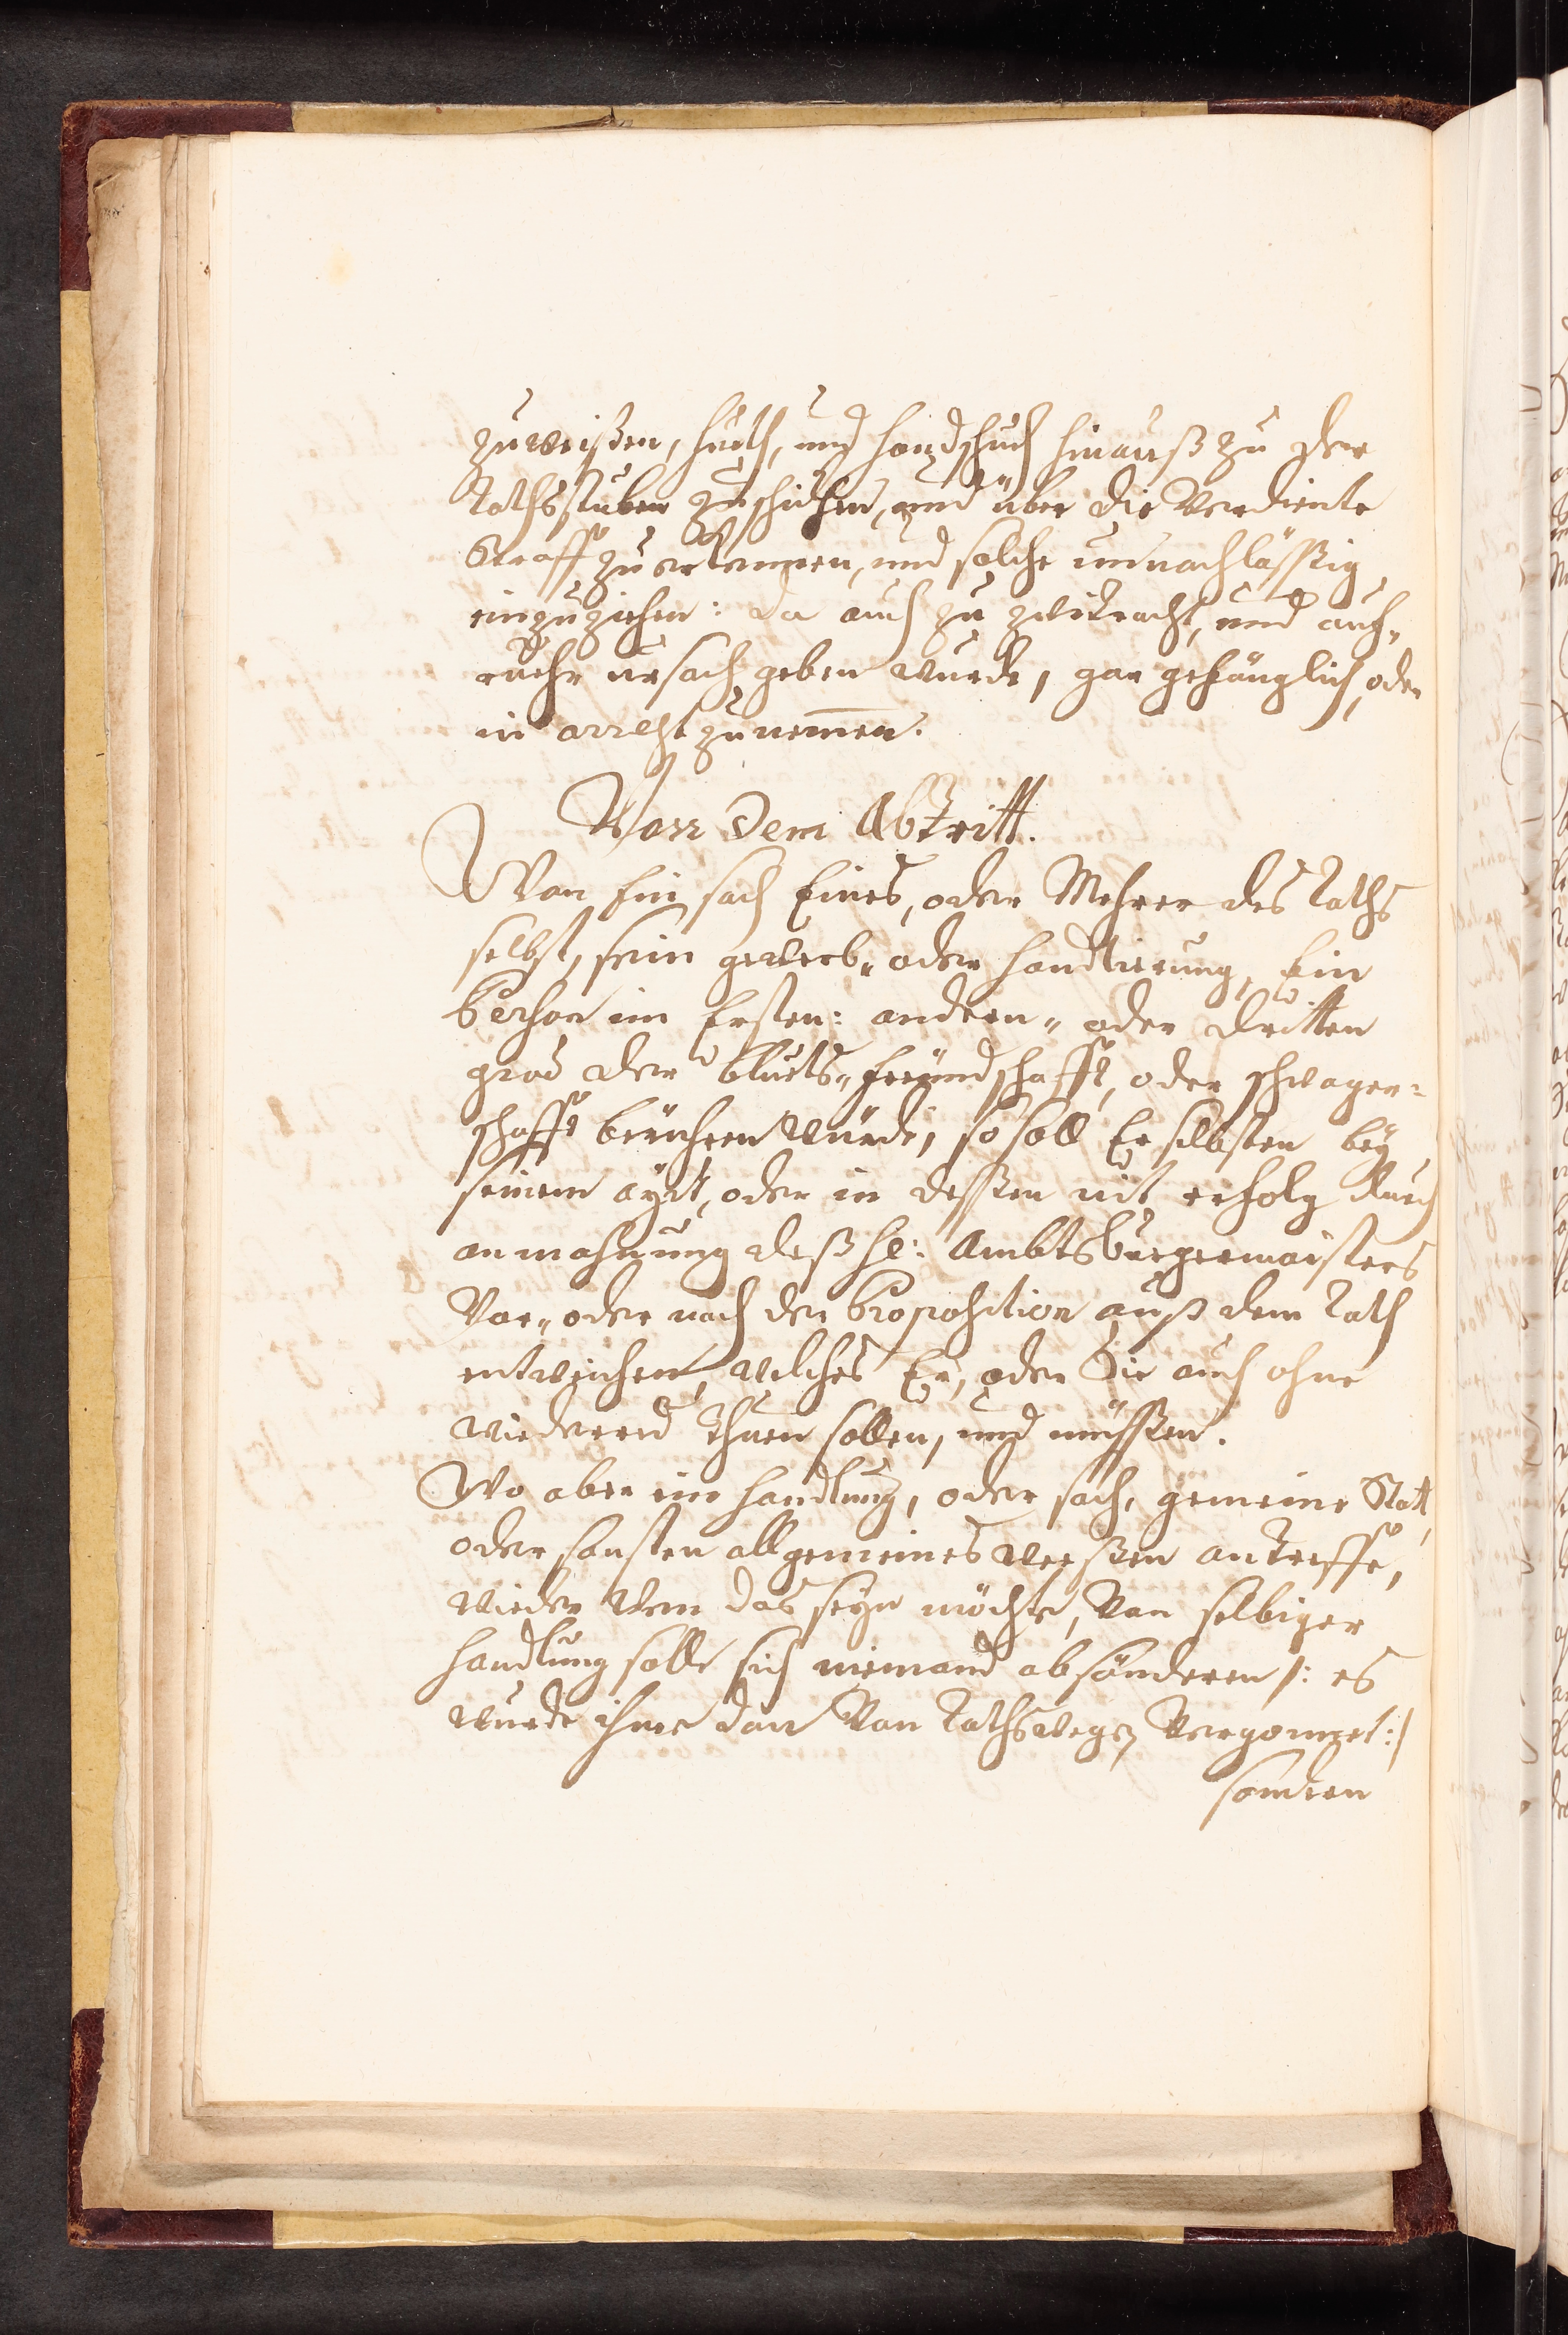 zuweißen, hueth, und handschuch hinauß zu der
Rathsstuben zuschickhen, und über die Verdiente
Straff zuerkennen, und solche unnachlässig
einzuziehen: da auch zu zwitracht, und auf„
ruehr ursach geben wurde, gar gefänglich, oder
in arrest zunem̅en.
Von dem Abtritt.
Wan Ein sach Eines, oder Mehrer des Raths
selbst, sein gewerb„ oder handtierung, Ein
Persohn im Ersten: andern„ oder dritten
grad der bluets„ freündschafft, oder schwager=
schafft berühren würde, so soll Er selbsten bey
seinem aydt, oder in dessen nit erfolg durch
anmahnung deß H: Ambtsburgermaisters
Vor„ oder nach der Proposition auß dem Rath
entweichen, welches Er, oder Sie auch ohne
wiederred thuen sollen, und müssen.
Wo aber ein handlung, oder sach, gemeine Statt,
oder sonsten allgemeines weesen antreffe,
wieder wem das seyn möchte, Von selbiger
handlung solle sich niemand absönderen /: es
wurde ihme dan Von Rathswegen Vergonnet :/
sondern